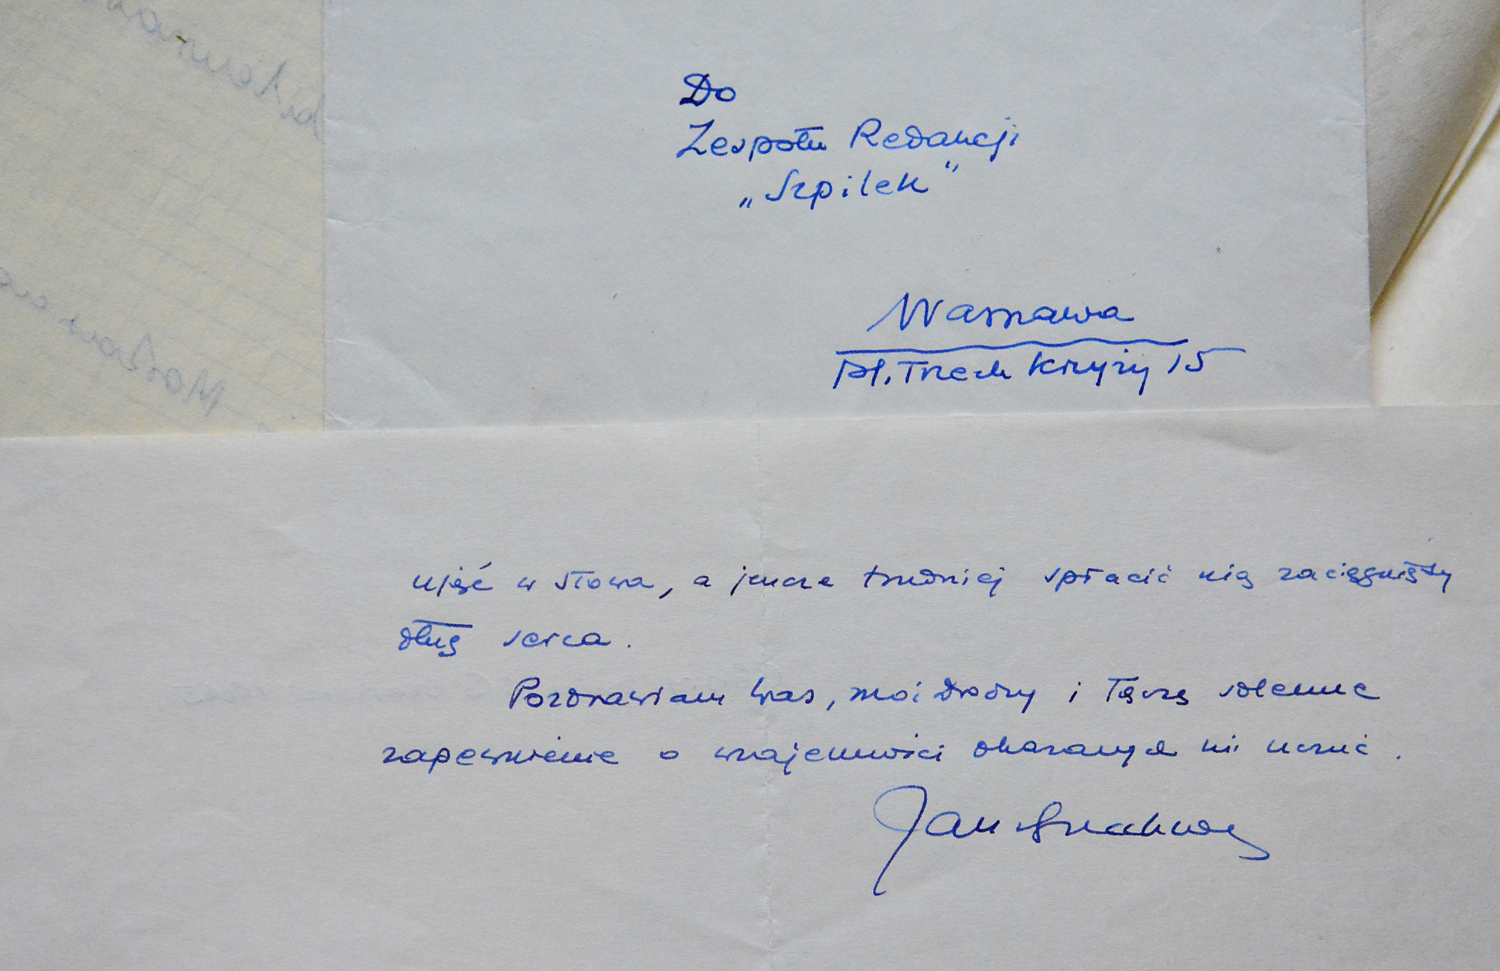 Do
Zespołu Redakcji
„Szpilek”
Warszawa
Pl. Trzech Krzyży 15
ująć w słowa, a jeszcze trudniej spłacić nią zaciągnięty
dług serca.
Pozdrawiam Was, moi drodzy i łączę solenne
zapewnienie o wzajemności okazanych mi uczuć.
Jan